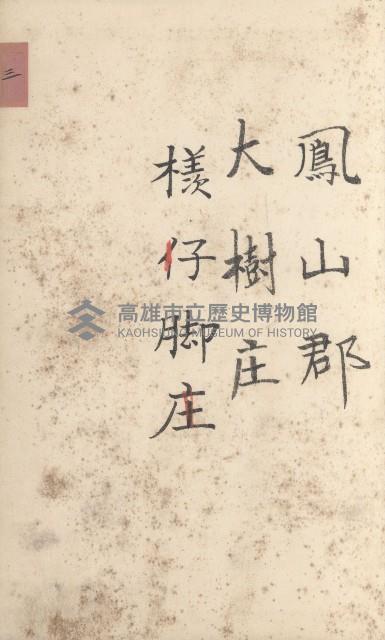 鳳山郡
大樹庄
檨仔脚庄
三
高雄市立歷史博物館
KAOHSIUNG MUSEUM OF HISTORY